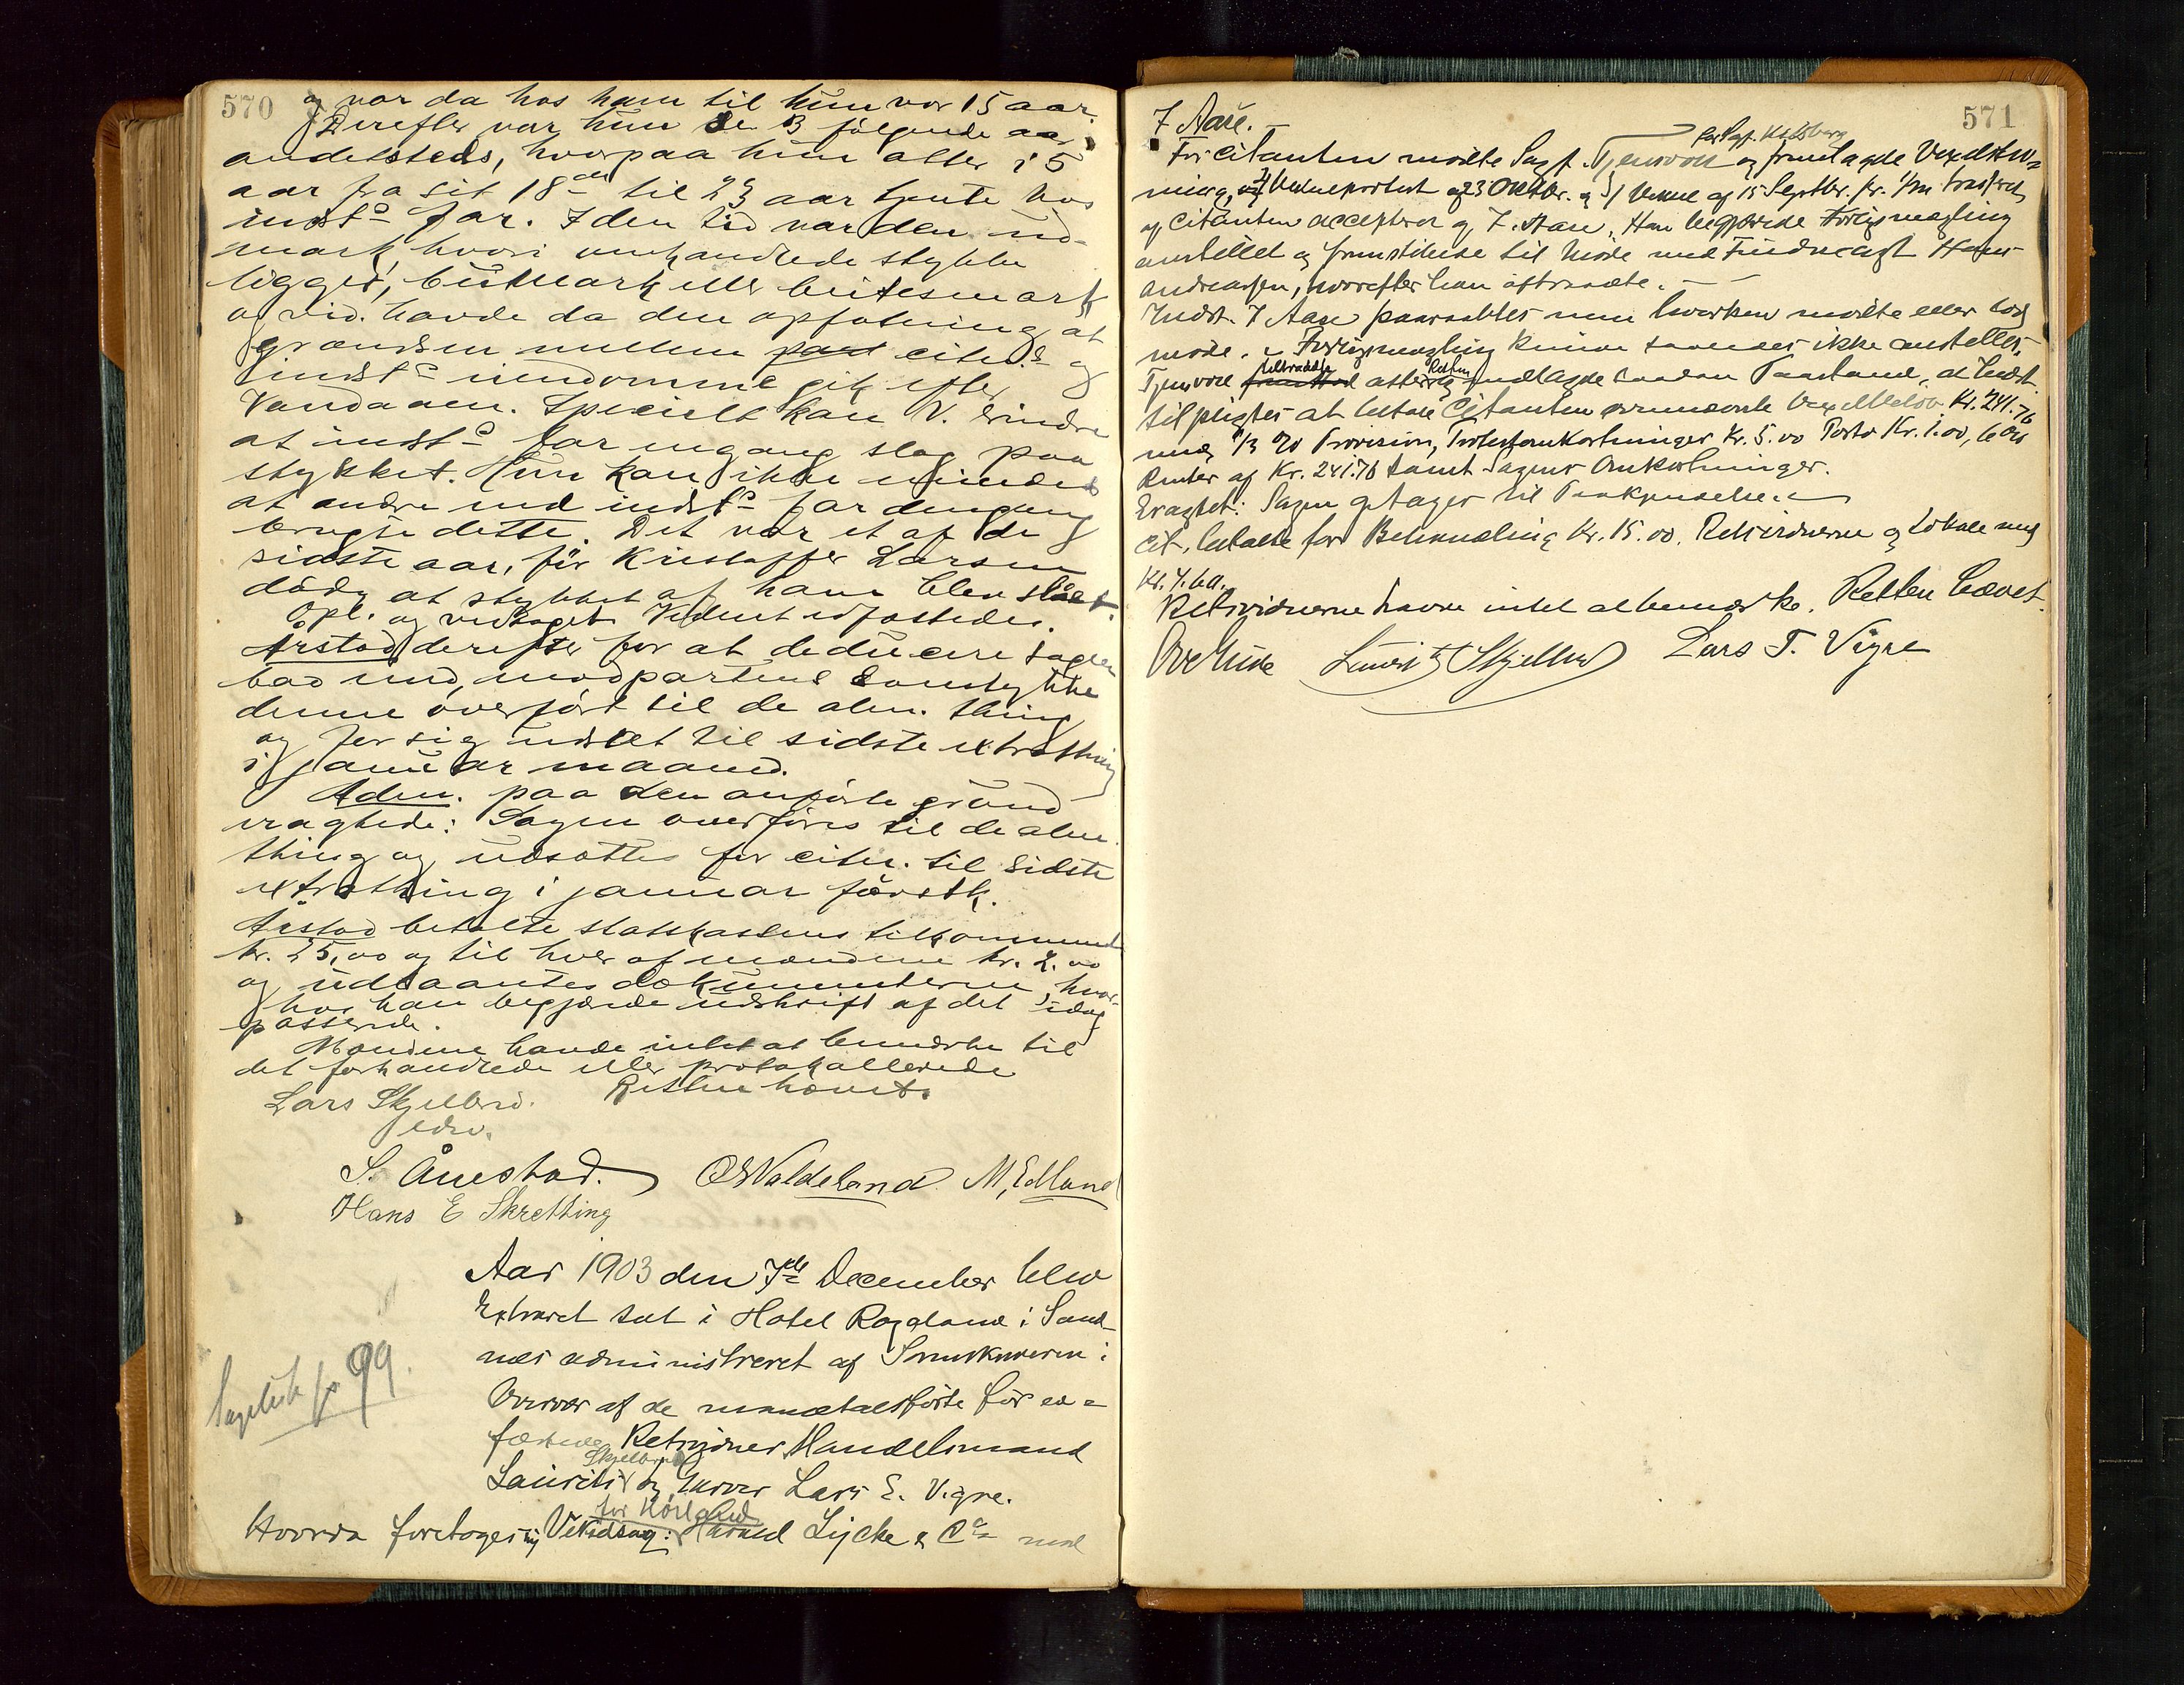 570
og var da hos ham til hun var 15 aar.
Derefter var hun de 3 følgende aar
andetsteds, hvorpaa hun atter i 5
aar fra sit 18de til 23 aar tjente hos
indsts far. I den tid var den ud-
mark, hvori omhandlede stykke
ligger, bumark eller beitesmark
og vid. havde da den opfatning, at
grændsen mellem citns og
indsts eiendomme gik efter
Vandaaen. Specielt kan V. erindre
at indsts far engang slog paa
stykket. Hun kan ikke mindes
at andre end indsts far dengang
brugte dette. Det var et af de
sidste aar, før Kristoffer Larsen
døde at stykket af ham blev slaaet.
Opl. og vedtaget. Vidnet
Årstad derefter for at deducere sagen
bad med modpartens samtykke
denne overført til de alm. thing
og for sig udsat til sidste extrathing
i januar maaned.
Adm. paa den anførte grund
eragtede: Sagen overføres til de alm.
thing og udsættes for citn. til sidste
extrathing i januar førstk.
Årstad betalte statskassens tilkommende
kr. 25,00 og til hver af mændene kr. 2.00
og udlaantes dokumenterne, hvor-
hos han begjærede udskrift af det idag
passerede.
Mændene havde intet at bemærke til
det forhandlede eller protokollerede
Retten hævet.
Lars Skjelbred.
edsv.
S. Auestad. O Valdeland M, Edland
Hans E Skretting
Aar 1903 den 7de December blev
Extraret sat i Hotel Rogaland i Sand-
nes administreret af Sorenskriveren i
Overvær af de mandtalsførte før ed-
fæstede Retsvidner Handelsmand
Skjelbred
Lauritz og Lars E. Vigre.
for Hørland
Hvorda foretoges Harald Lycke & Co mod
Sagliste fr 99.
571
T Aase. —
for Sagf. Kolsberg
For Citanten mødte Sagf. Tjensvoll og fremlagde Vexelstev-
ning, af 23 Oktbr. og Vexel af 15 Septbr.
af Citanten accepteret af T. Aase. Han begjærede Forligsmægling
anstillet og fremstillede til Møde med Fuldmagt Hans
Andreassen, hvorefter han aftraadte. —
Indst. T Aase paaraabtes men hverken mødte eller lod
møde. Forligsmægling kunde saaledes ikke anstilles,
tiltraadte Retten
Tjensvoll atter og nedlagde saadan Paastand, at Indst
tilpligtes at betale Citanten ommeldte Vexelbeløb Kr. 241.76
med 1/3 % Provision, Protestomkostninger Kr. 5.00 Porto Kr. 1.00, 6 %
Renter af Kr. 241.76 samt Sagens Omkostninger.
Eragtet: Sagen optages til Paakjendelse.
Cit. betalte for Behandling Kr. 15.00. Retsvidnerne og Lokale med
Kr. 4.60.
Retsvidnerne havde intet at bemærke. Retten hævet.
Lauritz Skjelbred Lars T. Vigre